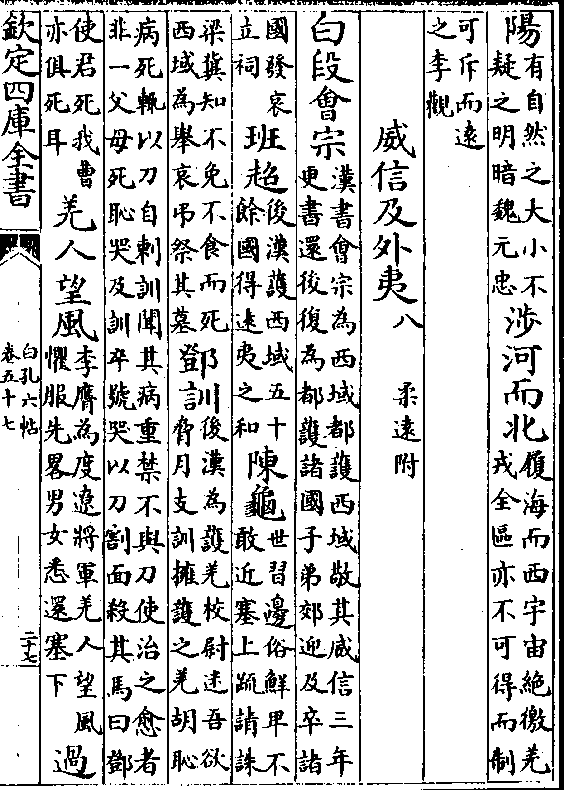 陽有自然之大小不
疑之明暗魏元忠
涉河而北
履海而西宇宙絶徼羌
戎全區亦不可得而制
可斥而遠
之李觀
威信及外夷八
柔遠附
白段會宗
漢書會宗為西域都護西域敬其威信三年
更書還後復為都護諸國子弟郊迎及卒諸
國發哀
立祠
班超
後漢護西域五十
餘國得遠夷之和
陳龜
世習邊俗鮮卑不
敢近塞上疏請誅
梁冀知不免不食而死
西域為舉哀弔祭其墓
鄧訓
後漢為護羌校尉迷吾欲
脅月支訓擁護之羌胡恥
病死輒以刀自刺訓聞其病重禁不與刀使治之愈者
非一父母死恥哭及訓卒號哭以刀割面殺其馬曰鄧
使君死我曹
亦俱死耳
羌人望風
李膺為度遼將軍羌人望風
懼服先畧男女悉還塞下
過
欽定四庫全書
白孔六帖
卷五十七
二十七